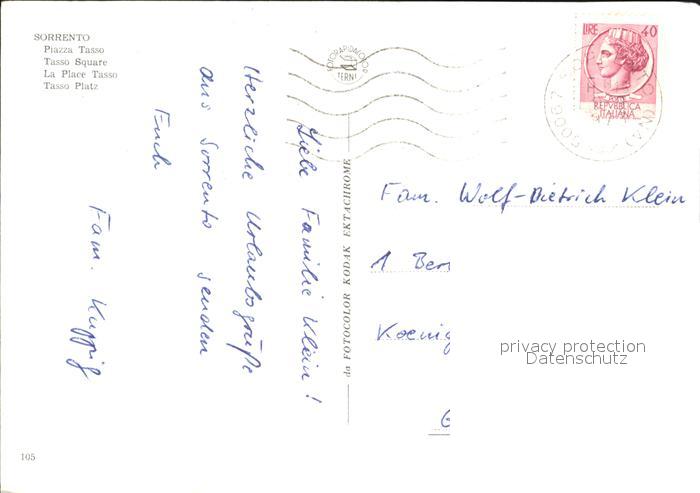 SORRENTO
Piazza Tasso
Tasso Square
La Place Tasso
Tasso Platz
Liebe Familie Klein!
Herzliche Urlaubsgrüße
aus Sorrento senden
Euch
Fam. Kuppig
105
da FOTOCOLOR KODAK EKTACHROME
FOTORAPIDACOLOR
TERNI
LIRE 40
REPVBBLICA
ITALIANA
80067
Fam. Wolf-Dietrich Klein
1 Ber
Koenig
privacy protection
Datenschutz